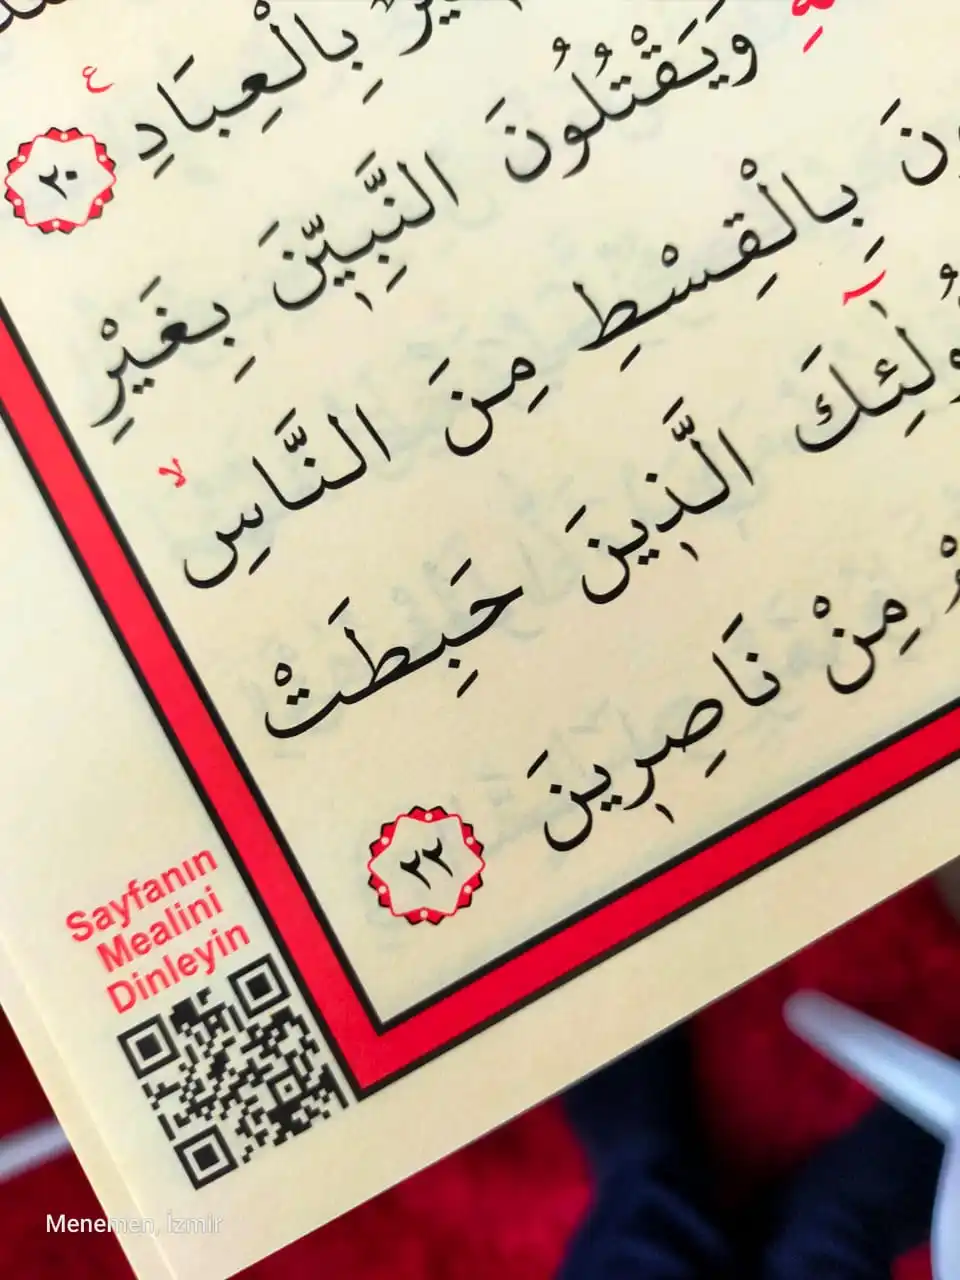 بِالْعِبَادِ ع ٢٠
وَيَقْتُلُونَ النَّبِيّٖنَ بِغَيْرِ
بِالْقِسْطِ مِنَ النَّاسِ لا
الَّذٖينَ حَبِطَتْ
مِنْ نَاصِرٖينَ ٢٢
Sayfanın
Mealini
Dinleyin
Menemen, İzmir